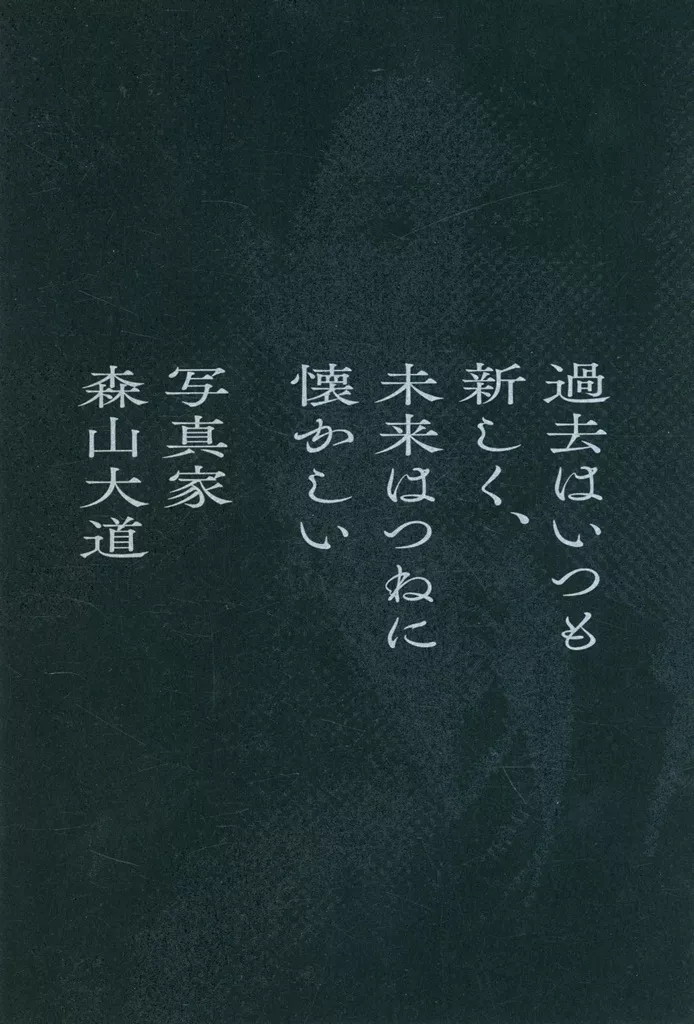 過去はいつも
新しく、
未来はつねに
懐かしい
写真家
森山大道